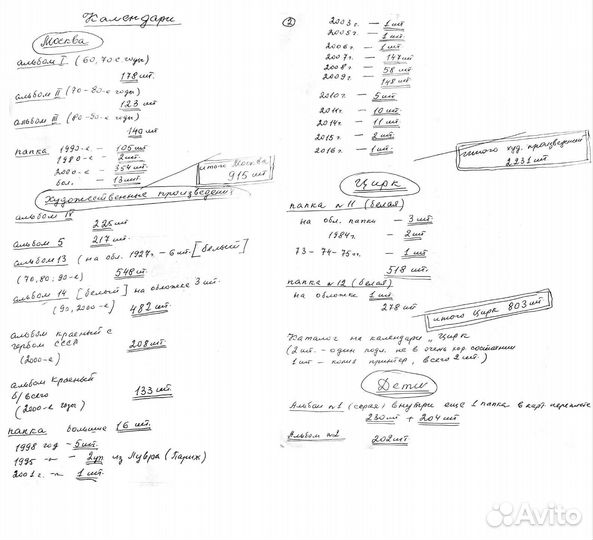 Календари
Москва
альбом I (60,70-е годы)
178 шт.
альбом II (70-80-е годы)
123 шт
альбом III (80-90-е годы)
140 шт
папка 1990-е - 105 шт
1980-е - 2 шт.
2000-е - 354 шт
бол. - 13 шт.
итого Москва
915 шт
Художественные произведения
альбом IV
225 шт
альбом 5 217 шт.
альбом 13 (на обл. 1927г. - 6 шт. [белый]
(70,80,90-е) 548 шт.
альбом 14 [белый] на обложке 3 шт.
(90, 2000-е) 482 шт.
альбом красный с
гербом СССР 208 шт.
(2000-е)
альбом красный
б/всего 133 шт.
(2000-е годы)
папка большие 16 шт.
1998 год - 5 шт.
1995 -"- - 2 уп из Лувра (Париж)
2001 г. -"- 1 шт.
2
2003 г. - 1 шт
2005 г. - 1 шт.
2006 г. - 1 шт.
2007 г. - 147 шт
2008 г. - 58 шт
2009 г. - 148 шт.
2010 г. - 5 шт
2011 г. - 10 шт
2014 г. - 11 шт
2015 г. - 8 шт
2016 г. - 1 шт.
итого худ. произведений
2231 шт
Цирк
папка №11 (белая)
на обл. папки - 3 шт.
1984 г. - 2 шт
73-74-75 гг. - 1 шт
518 шт.
папка №12 (белая)
на обложке 1 шт
278 шт
итого Цирк 803 шт
Каталог на календари "Цирк
(2 шт. - один подл. не в очень хор состоянии
1 шт - копия принтер, всего 2 шт.)
Дети
Альбом №1 (серая) внутри ещё 1 папка в карт переплете
230 шт + 204 шт
Альбом №2 202 шт
Avito